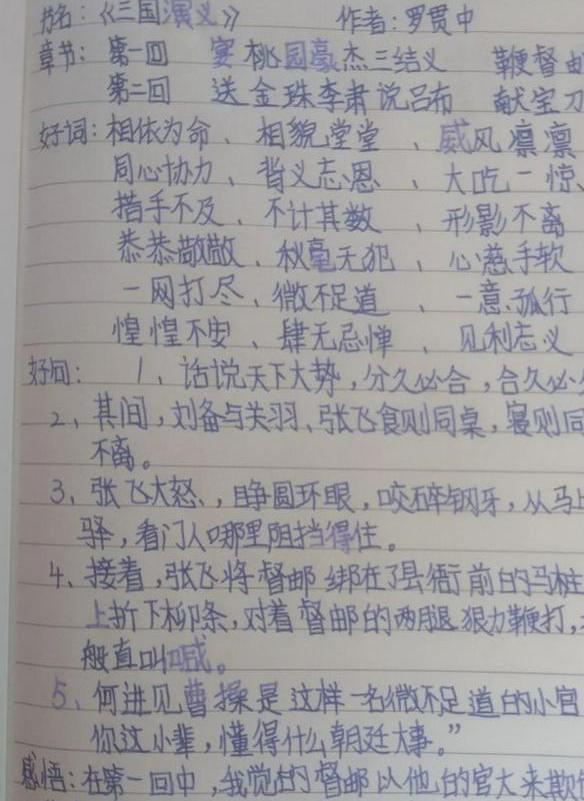 书名：《三国演义》 作者：罗贯中
章节：第一回 宴桃园豪杰三结义 鞭督邮
第二回 送金珠李肃说吕布 献宝刀
好词：相依为命、相貌堂堂、威风凛凛
同心协力、背义忘恩、大吃一惊、
措手不及、不计其数、形影不离
恭恭敬敬、秋毫无犯、心慈手软
一网打尽、微不足道、一意孤行
惶惶不安、肆无忌惮、见利忘义
好句：1、话说天下大势，分久必合，合久必
2、其间，刘备与关羽、张飞食则同桌，寝则同
不离。
3、张飞大怒、，睁圆环眼，咬碎钢牙，从马上
驿，看门人哪里阻挡得住。
4、接着，张飞将督邮绑在了县衙前的马桩
上折下柳条，对着督邮的两腿狠力鞭打，
般直叫喊。
5、何进见曹操是这样一名微不足道的小官
你这小辈，懂得什么朝廷大事。”
感悟：在第一回中，我觉的督邮以他的官大来欺